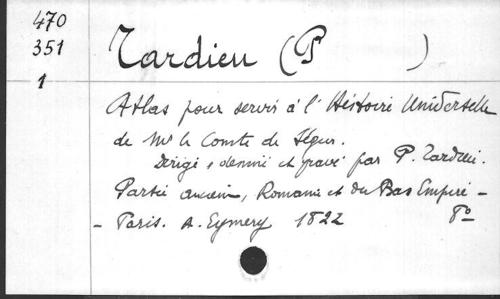 470
351
1
Tardieu (P )
Atlas pour servir à l'Histoire Universelle
de Mr le Comte de Ségur.
Dirigé, dessiné et gravé par P. Tardieu.
Partie ancienne, Romaine et du Bas Empire -
- Paris. A. Eymery 1822 8o